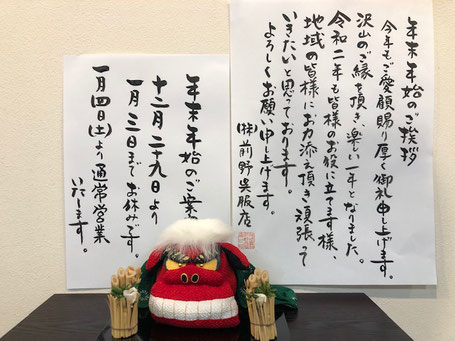 年末年始のご挨拶
今年もご愛顧賜り厚く御礼申し上げます。
沢山のご縁を頂き、楽しい一年となりました。
令和二年も皆様のお役に立てます様、
地域の皆様にお力添え頂き頑張って
いきたいと思っております。
よろしくお願い申し上げます。
㈱前野呉服店
年末年始のご案
十二月二十九日より
一月三日までお休みです。
一月四日(土)より通常営業
いたします。